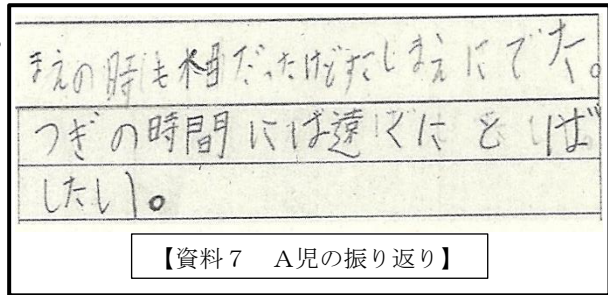 まえの時も木目だったけどすこしまえにでた。
つぎの時間には遠くにとば
したい。
【資料7 A児の振り返り】